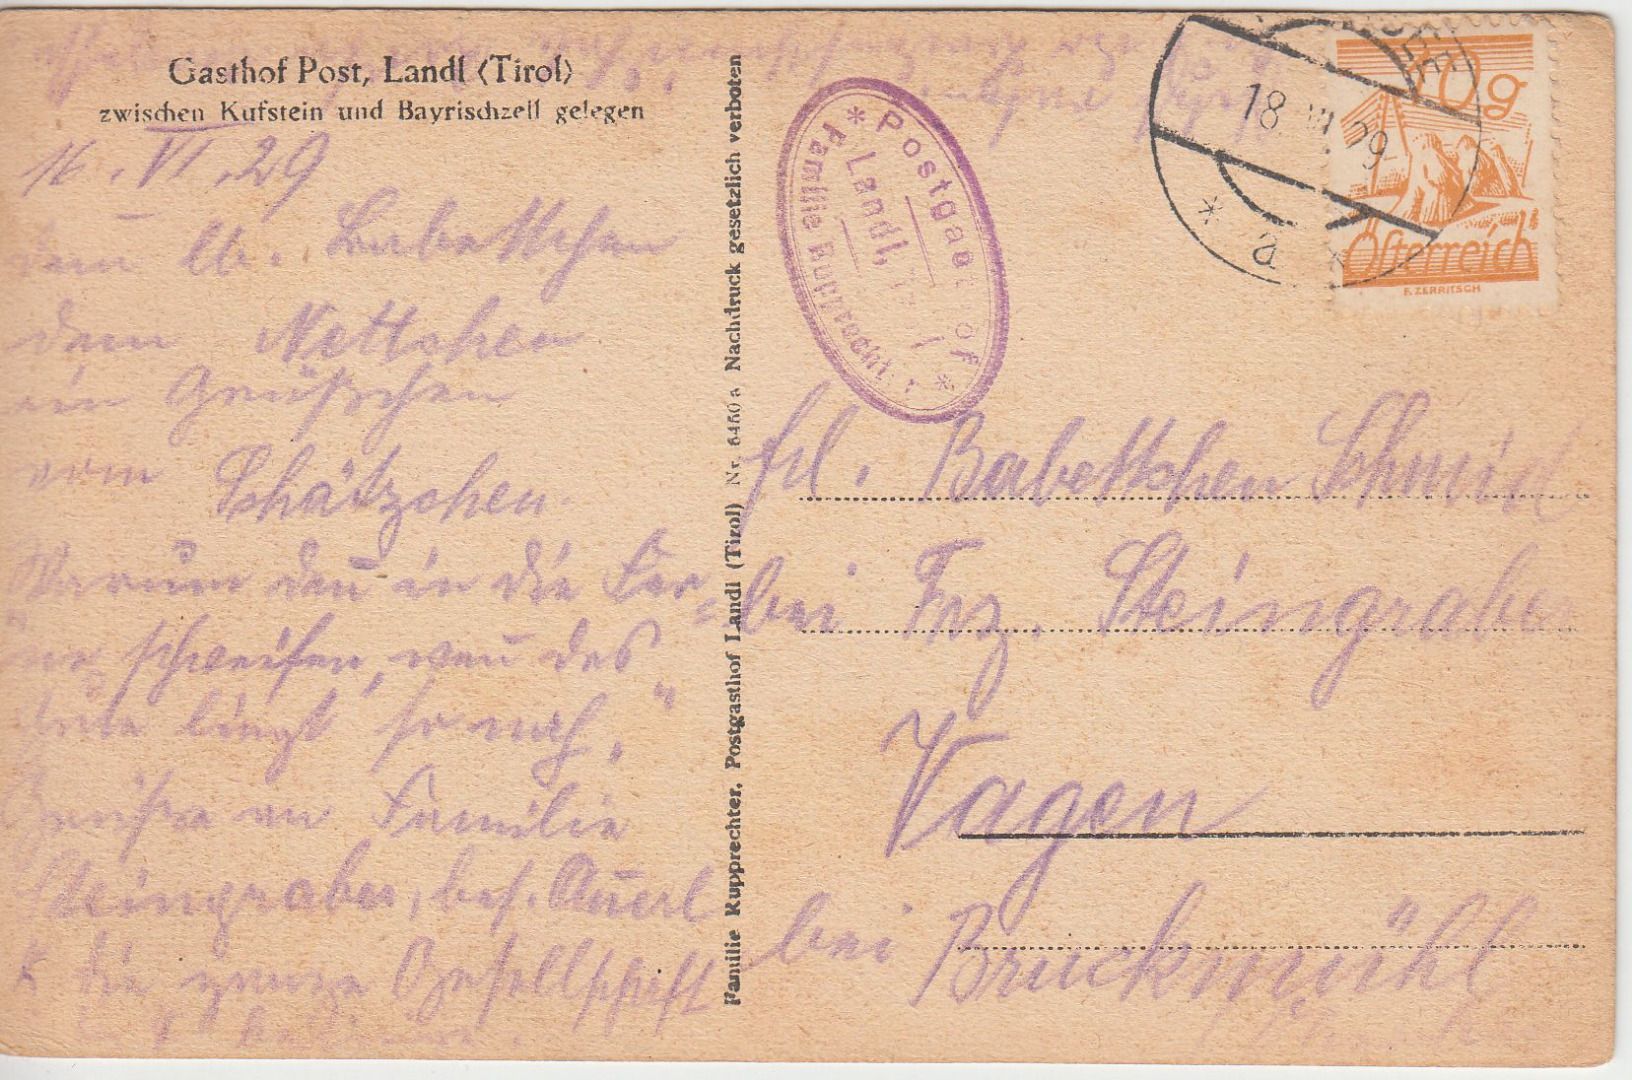 Gasthof Post, Landl (Tirol)
zwischen Kufstein und Bayrischzell gelegen
16. VI. 29
Dem lb. Babettchen
dem Nettchen
ein Grüßchen
vom Schätzchen.
Warum deñ in die Fer-
ne schweifen, weñ das
Gute liegt so nah,"
Grüsse an Familie
Steingraber, bes.
& die ganze Gesellschaft
Familie Rupprechter, Postgasthof Landl (Tirol) Nr. 6460 a Nachdruck gesetzlich verboten
* Postgasthof *
Landl, Tirol
Familie Rupprechter
18. VI. 29
* a *
10 g
Österreich
F. ZERRITSCH
Frl. Babettchen Schmid
bei Frz. Steingraber
Vagen
bei Bruckmühl